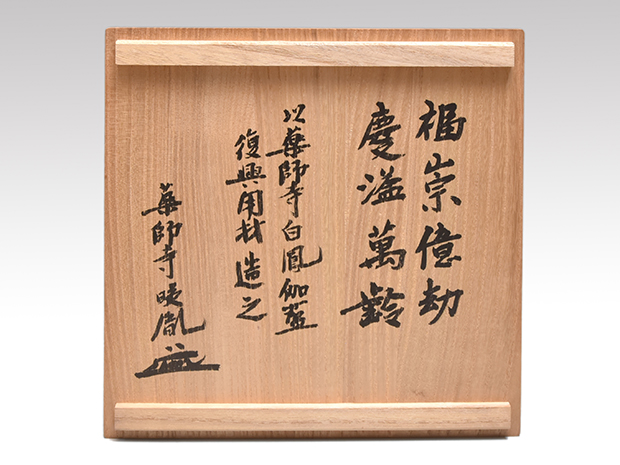 福崇億劫
慶溢萬齡
以薬師寺白鳳伽藍
復興用材造之
薬師寺暎胤